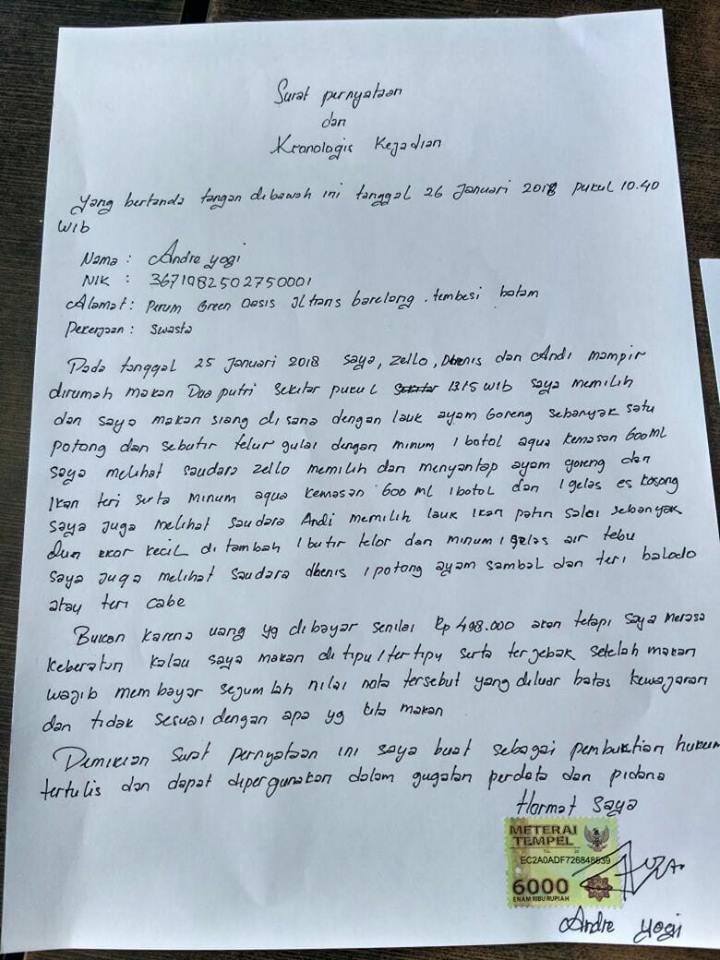 Surat pernyataan
dan
Kronologis Kejadian
Yang bertanda tangan dibawah ini tanggal 26 Januari 2018 pukul 10.40
WIB
Nama : Andre yogi
NIK : 3671982502750001
Alamat : Perum Green Oasis Jl trans barelang . tembesi batam
Pekerjaan : Swasta
Pada tanggal 25 Januari 2018 saya, Zello, Dhenis dan Andi mampir
dirumah makan Dua putri sekitar pukul 13.15 WIB saya memilih
dan saya makan siang di sana dengan lauk ayam Goreng sebanyak satu
potong dan sebutir telur gulai dengan minum 1 botol aqua kemasan 600 ML
saya melihat saudara zello memilih dan menyantap ayam goreng dan
Ikan teri serta minum aqua kemasan 600 ml 1 botol dan 1 gelas es kosong
saya juga melihat saudara Andi memilih lauk Ikan patin salai sebanyak
Dua ekor kecil di tambah 1 butir telor dan minum 1 gelas air tebu
saya juga melihat saudara dhenis 1 potong ayam sambal dan teri balado
atau teri cabe
Bukan karena uang yg dibayar senilai Rp 498.000 akan tetapi saya merasa
keberatan kalau saya makan di tipu / tertipu serta terjebak setelah makan
wajib membayar sejumlah nilai nota tersebut yang diluar batas kewajaran
dan tidak sesuai dengan apa yg kita makan
Demikian surat pernyataan ini saya buat sebagai pembuktian hukum
tertulis dan dapat dipergunakan dalam gugatan perdata dan pidana
Hormat saya
METERAI
TEMPEL
EC2A0ADF726848639
6000
ENAM RIBU RUPIAH
Andre yogi